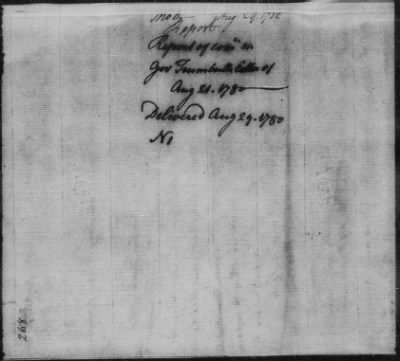 Aug 29. 1780
Report
Report of comee on
Gov Trumbull's letter of
Aug 21. 1780
Delivered Aug 29. 1780
N 1
268